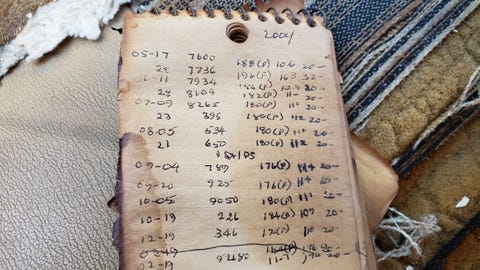 2004
05-17 7600 188(P) 10.6 20-
28 7736 196(P) 16.3 32-
6-11 7934 184(P) 10.4 20-
28 8109 182(P) 11- 20-
07-09 8265 180(P) 11¹ 20-
23 395 180(P) 11² 20-
08-05 534 180(P) 20-
21 650 180(P) 11² 20-
09-04 789 176(P) 11⁴ 20-
09-20 925 176(P) 11⁴ 20-
10-05 9050 180(P) 11¹ 20-
10-19 226 184(P) 10⁹ 20-
12-19 346 20-
02-19 9480 11-7 20-